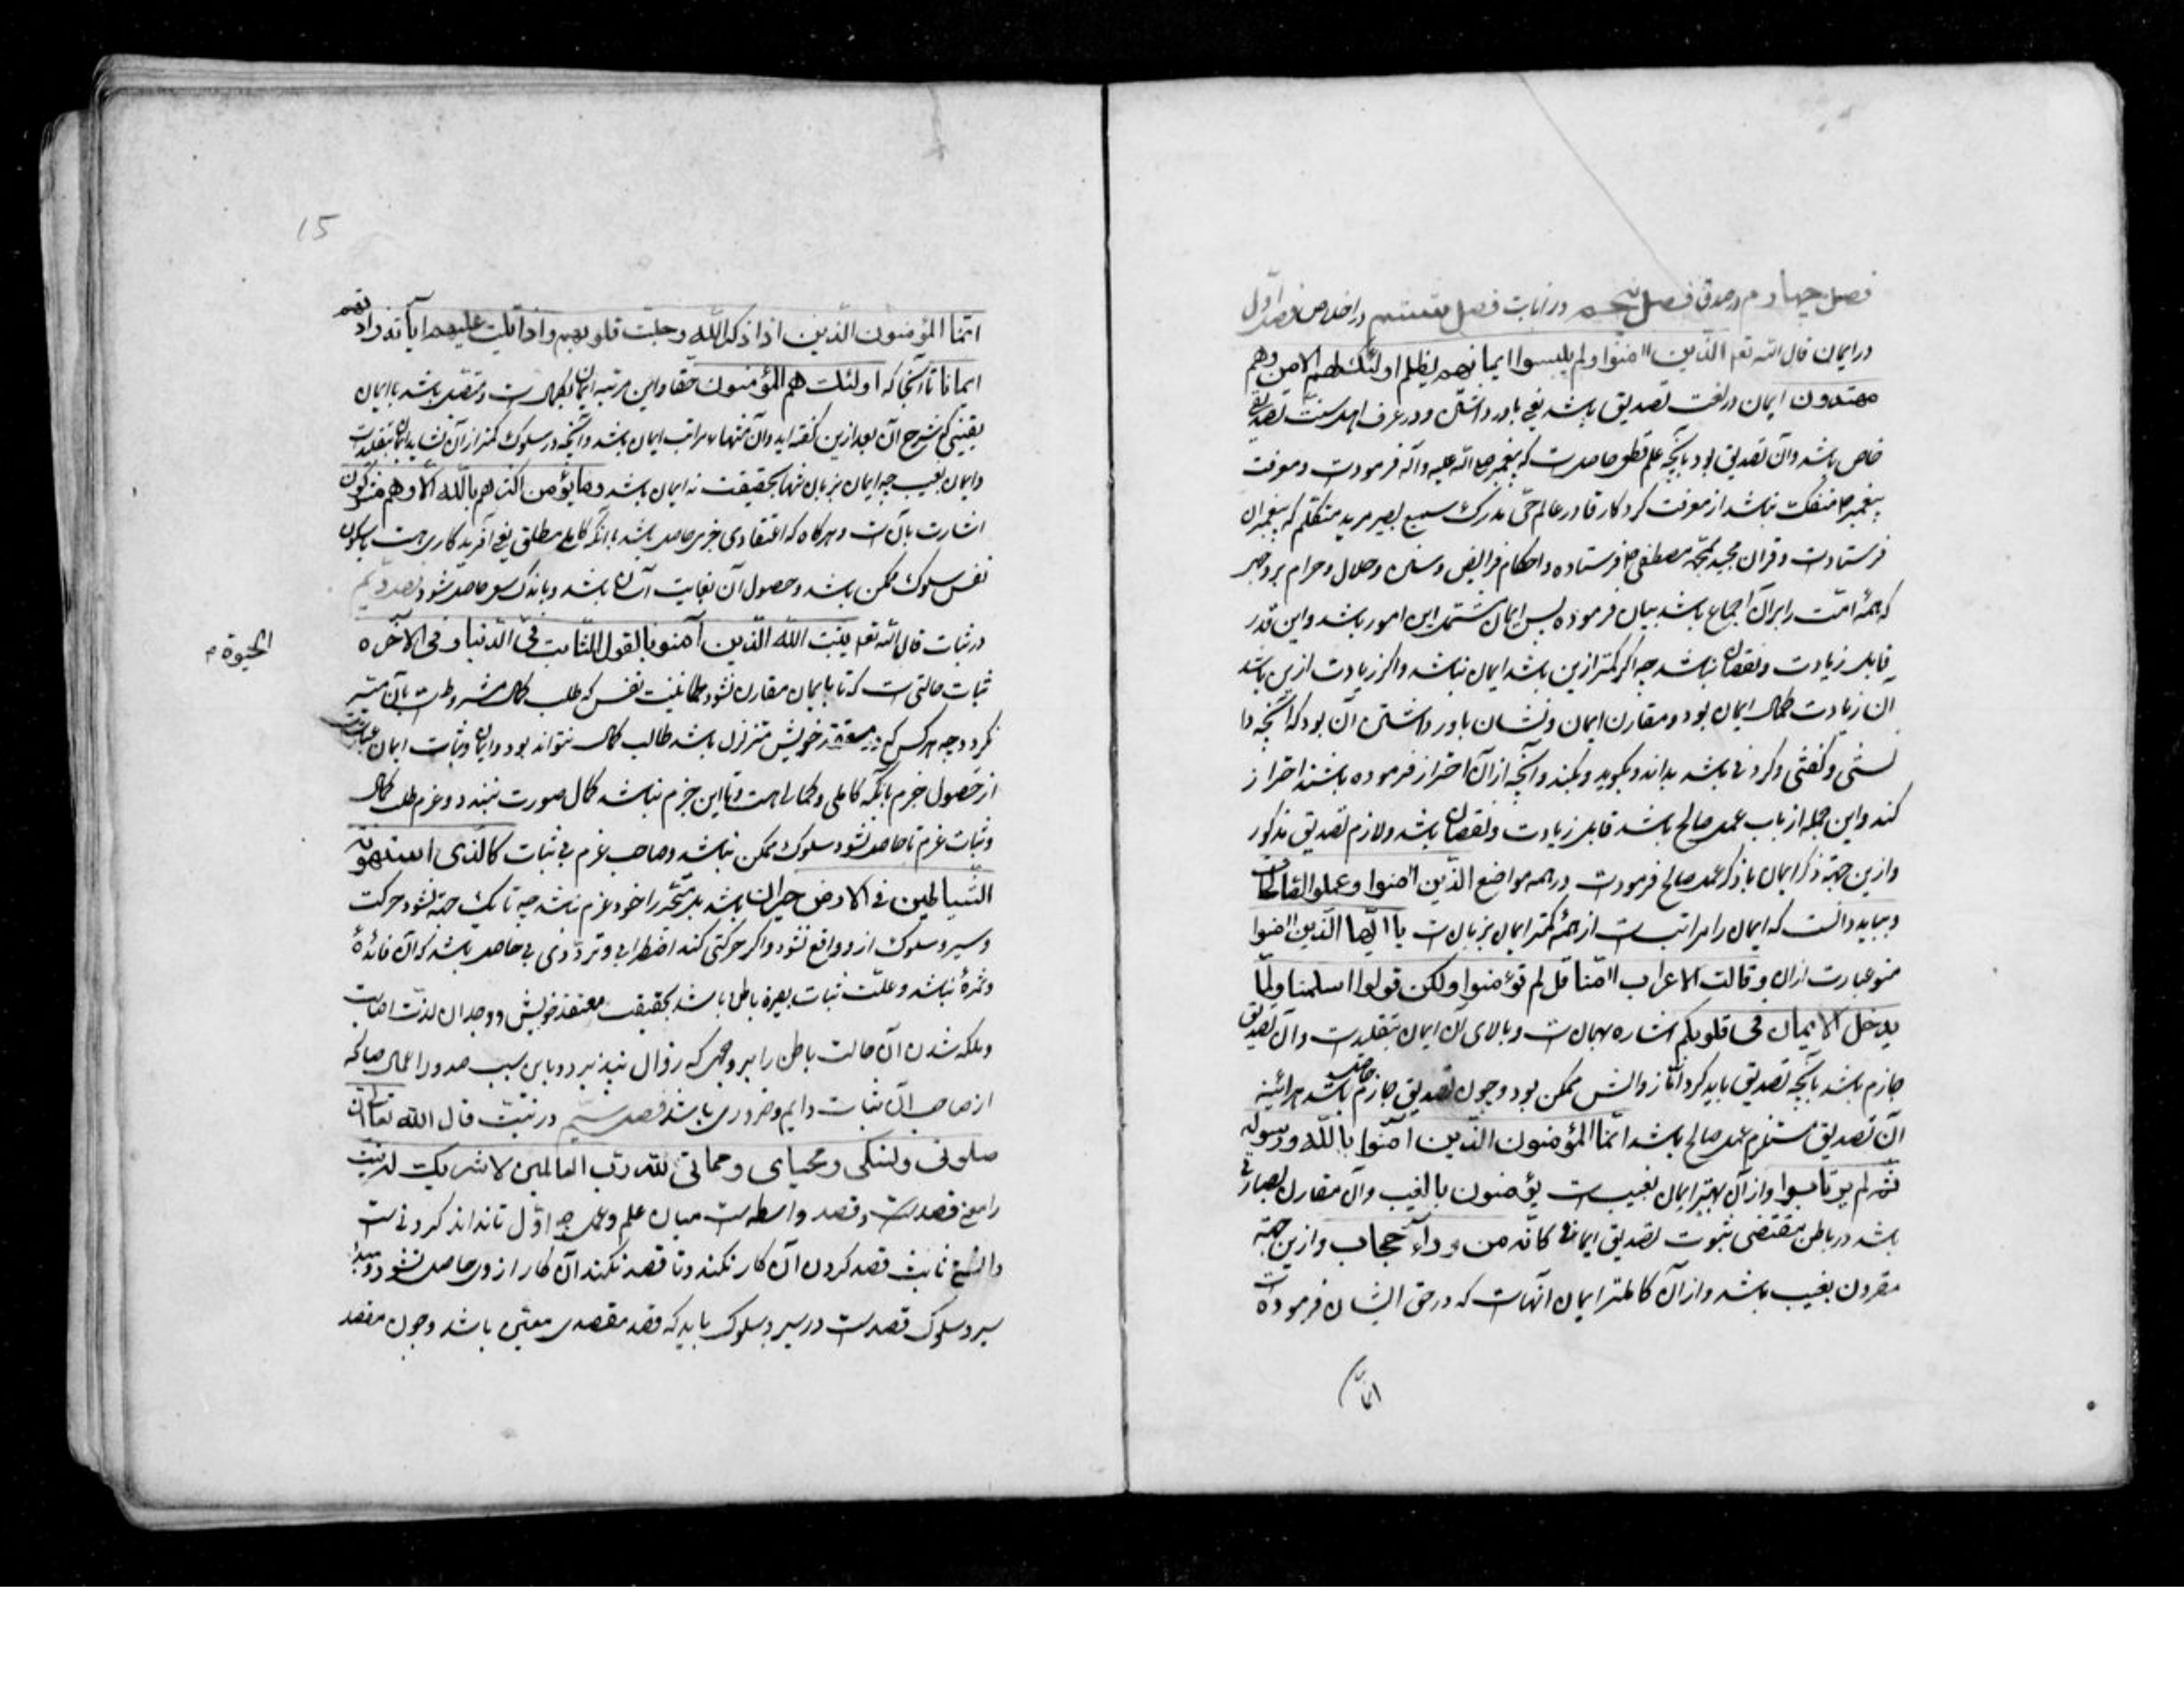 فصل چهارم در صدق فصل پنجم در انابت فصل ششم در اخلاص فصل اول
در ایمان قال الله تعه الذین آمنوا ولم یلبسوا ایمانهم بظلم اولئک لهم الامن وهم
مهتدون ایمان در لغت تصدیق باشد یعنی باور داشتن و در عرف اهل تصدیقی
خاص باشد و آن تصدیق بود بآنچه علم قطعی حاصلست که پیغمبر صلی الله علیه وآله فرمودست و معرفت
پیغمبر منفک نباشد از معرفت کردکار قادر عالم حی مدرک سمیع بصیر مرید متکلم که پیغمبران
فرستادست و قران مجید بمحمد مصطفی فرستاده و احکام فرایض و سنن و حلال و حرام بر وجهی
که همهٔ امّت را بران اجماع باشد بیان فرموده پس ایمان مشتمل این امور باشد و این قدر
قابل زیادت و نقصان نباشد چه اکر کمتر ازین باشد ایمان نباشد و اکر زیادت ازین باشد
آن زیادت کمال ایمان بود و مقارن ایمان و نشان باور داشتن آن بود که آنچه دا
نستنی و کفتنی و کردنی باشد بداند و بکوید و بکند و آنچه از آن احتراز فرموده باشند احتراز
کند و این جمله از باب عمل صالح باشد قابل زیادت و نقصان باشد و لازم تصدیق مذکور
و ازین جهة ذکر ایمان با ذکر عمل صالح فرمودست در همه مواضع الذین آمنوا وعملوا الصالحات
و بباید دانست که ایمان را مراتبست از همه کمتر ایمان بزبان‌ست یا ایها الذین آمنوا
منو عبارت از ان و قالت الاعراب آمنا قل لم تؤمنوا ولکن قولوا اسلمنا ولما
یدخل الایمان فی قلوبکم اشاره بهمان‌ست و بالای آن ایمان بتقلیدست و آن تصدیق
جازم باشد بآنچه تصدیق باید کرد امّا زوالش ممکن بود و چون تصدیق جازم حاصل باشد هرآئینه
آن تصدیق مستلزم عمل صالح باشد انما المؤمنون الذین آمنوا بالله ورسوله
ثم لم یرتابوا و از آن بهتر ایمان بغیبست یؤمنون بالغیب و آن مقارن بصارتی
باشد در باطن مقتضی ثبوت تصدیق ایمانی کانه من ورآء حجاب و ازین جهة
مقرون بغیب باشد و از آن کاملتر ایمان آنهاست که در حق ایشان فرموده‌ست
انما
15
انما المؤمنون الذین اذا ذکر الله وجلت قلوبهم واذا تلیت علیهم آیاته زادتهم
ایمانا تا آنجا که اولئک هم المؤمنون حقا و این مرتبه ایمان بکمال‌ست و متصل باشد با ایمان
یقینی که شرح آن بعد ازین کفته آید و آن منتهاء مراتب ایمان باشد و آنچه در سلوک کمتر از آن نشاید ایمان بتقلیدست
و ایمان بغیب چه ایمان بزبان تنها بحقیقت نه ایمان باشد وما یؤمن اکثرهم بالله الا وهم مشرکون
اشارت بآن‌ست و هرکاه که اعتقادی جزمی حاصل باشد بآنکه کاملی مطلق یعنی آفریدکاری هست با سکون
نفس سلوک ممکن باشد و حصول آن بغایت آسان باشد و باندک سعی حاصل شود فصل دویم
در ثبات قال الله تعه یثبت الله الذین آمنوا بالقول الثابت فی الدنیا وفی الآخره
الحیوة م
ثبات حالتی‌ست که تا با ایمان مقارن نشود طمانینت نفس که طلب کمال مشروطست بآن میسر
نکردد چه هر کس که در معتقد خویش متزلزل باشد طالب کمال نتواند بود و ثبات ایمان عبارتست
از حصول جزم بآنکه کاملی و کمالی هست و تا این جزم نباشد کمال صورت نبندد و عزم طلب کمال
و ثبات عزم تا حاصل نشود سلوک ممکن نباشد و صاحب عزم بی ثبات کالذی استهوته
الشیاطین فی الارض حیران باشد بلکه متحیر را خود عزم نباشد چه تا یک جهة نشود حرکت
و سیر و سلوک ازو واقع نشود و اکر حرکتی کند اضطرابی و ترددی بی حاصل باشد که آن فائدهٔ
و ثمرهٔ نباشد و علت ثبات بصیرة باطن باشد بحقیقت معتقد خویش و وجدان لذّت اصابت
و ملکه شدن آن حالت باطن را بر وجهی که زوال نپذیرد و باین سبب صدور اعمال صالحه
از صاحب آن ثبات دایم و ضروری باشد فصل سیم در نیّت قال الله تعالی ان
صلوتی ونسکی ومحیای ومماتی لله رب العالمین لا شریک له نیت
را معنی قصدست و قصد واسطه‌ست میان علم و عمل چه اوّل تا نداند کردنی‌ست
ثابت قصد کردن آن کار نکند و تا قصد نکند آن کار از وی حاصل نشود و مبدأ
سیر و سلوک قصدست در سیر و سلوک باید که قصد مقصدی معین باشد و چون مقصد